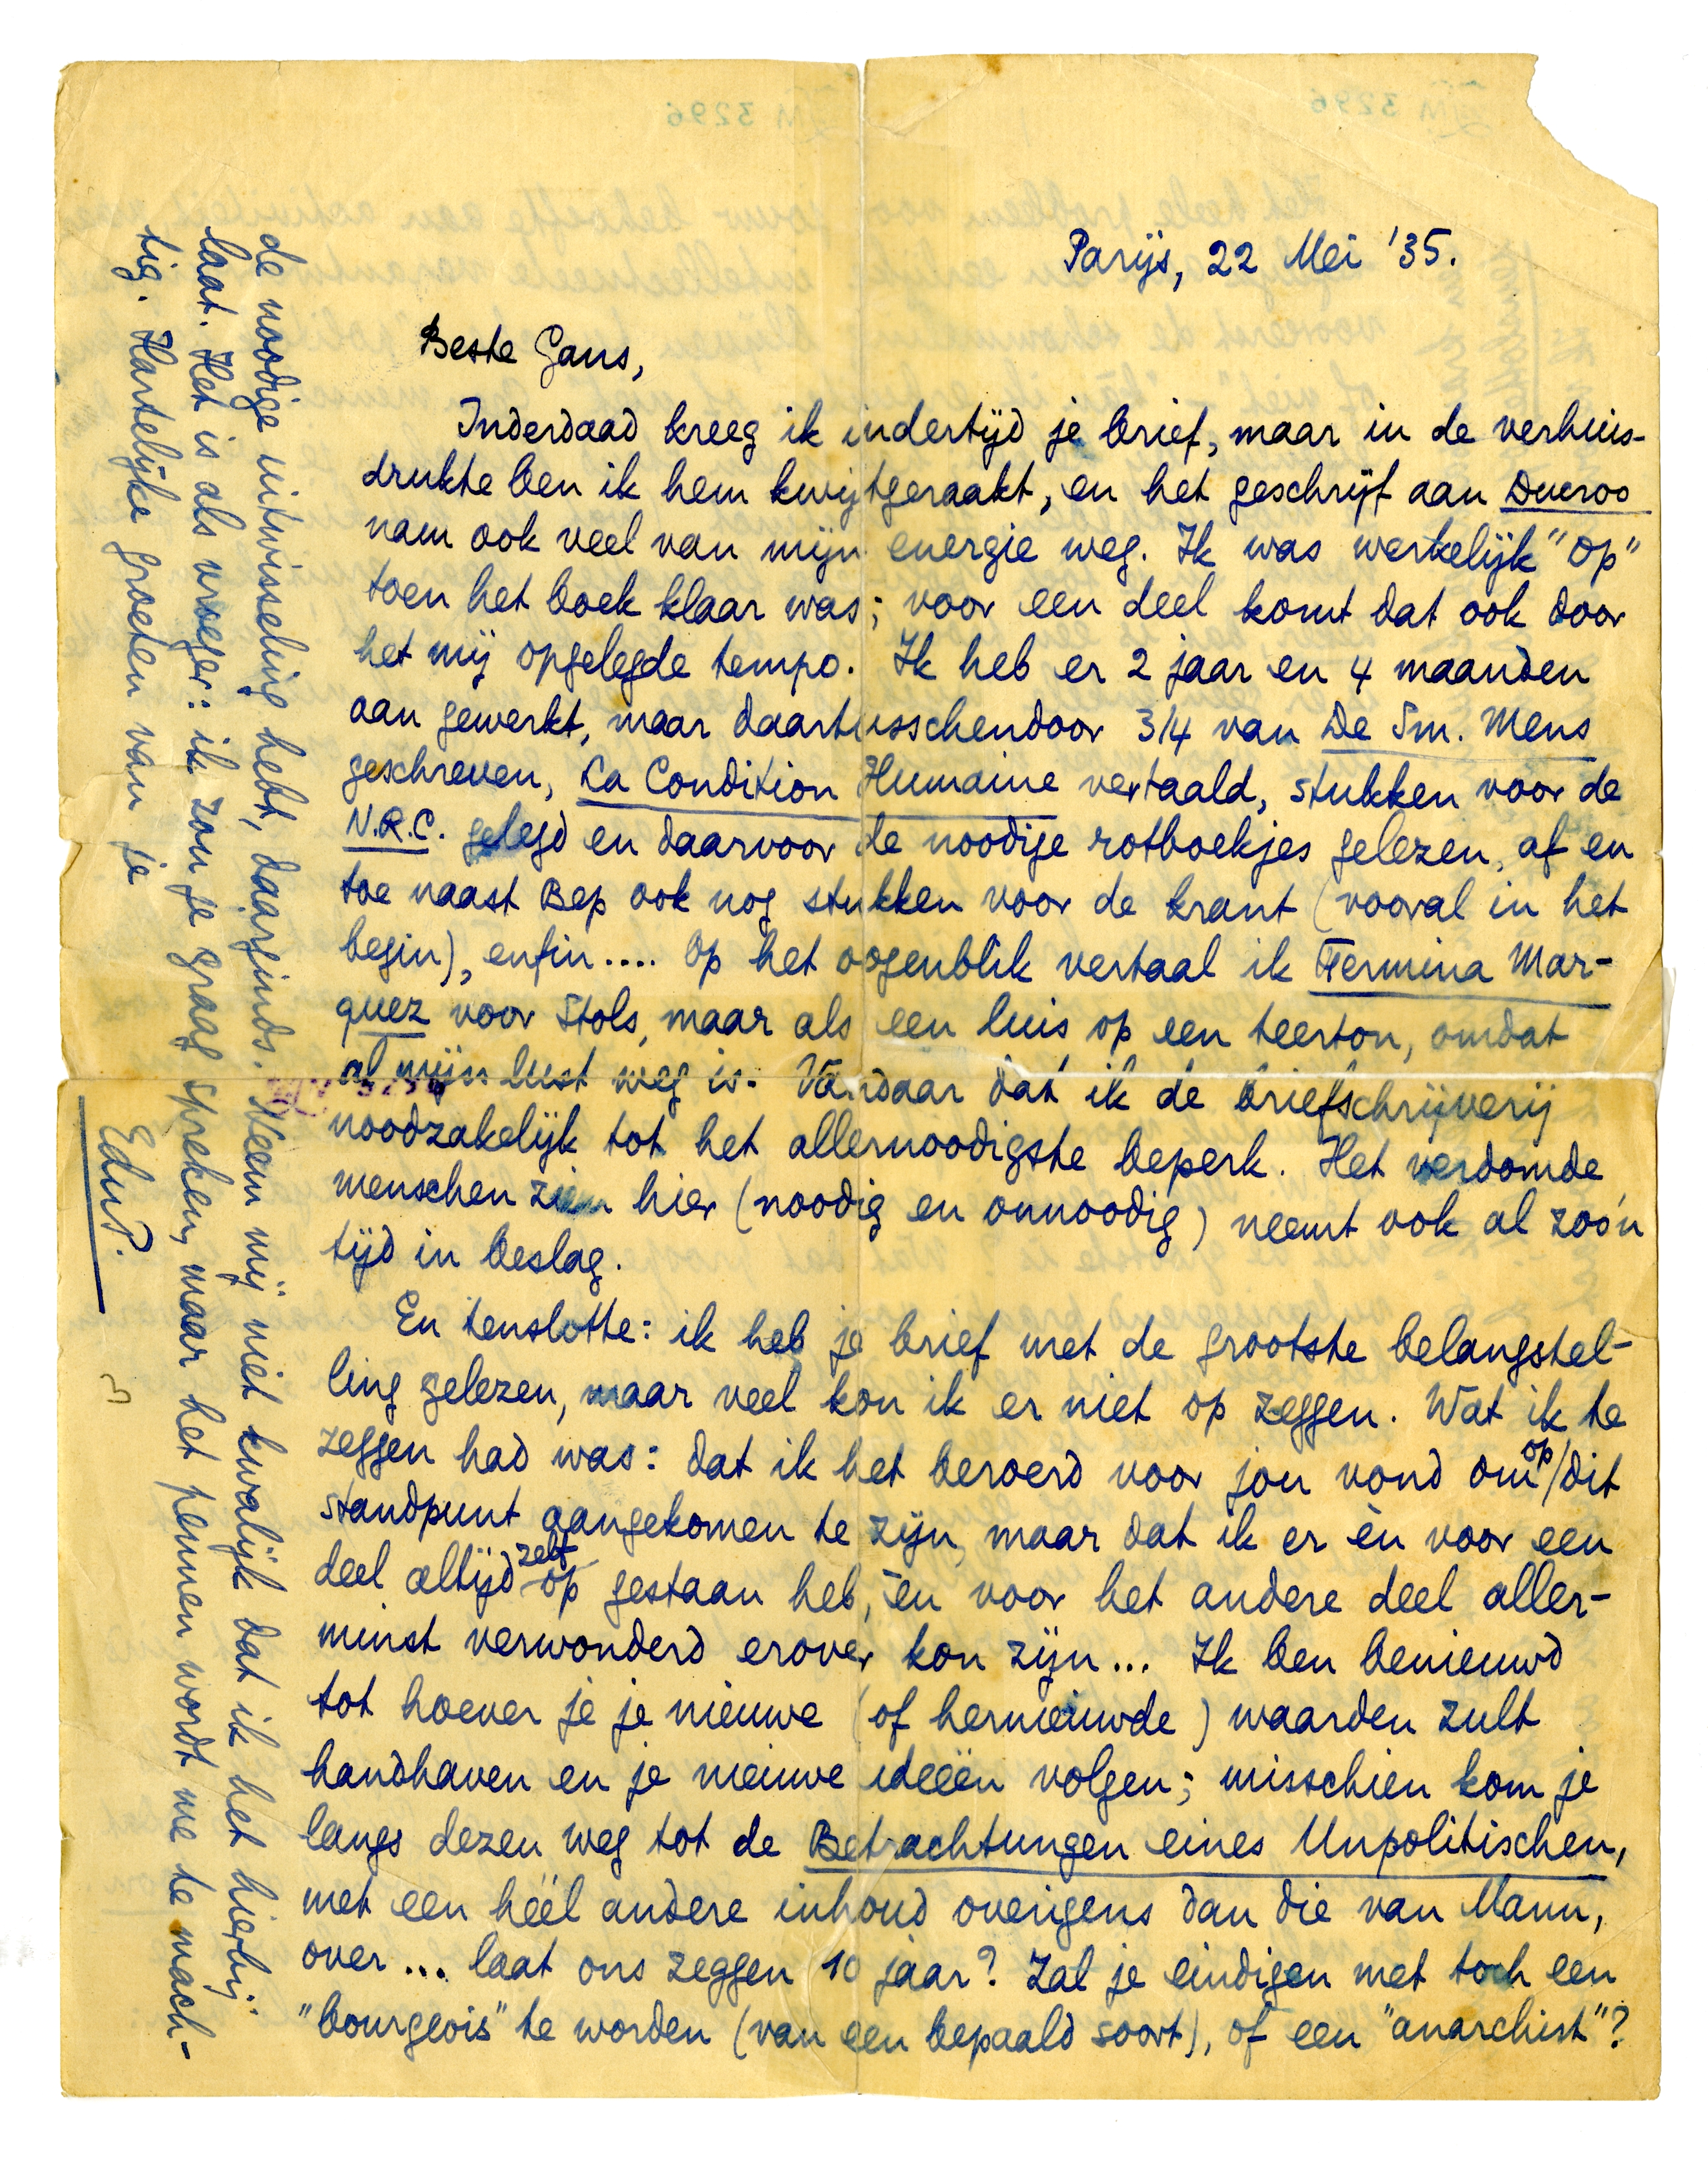 Parijs, 22 Mei '35.
Beste Gans,
Inderdaad kreeg ik indertijd je brief, maar in de verhuis-
drukte ben ik hem kwijtgeraakt, en het geschrijf aan Ducroo
nam ook veel van mijn energie weg. Ik was werkelijk "op"
toen het boek klaar was; voor een deel komt dat ook door
het mij opgelegde tempo. Ik heb er 2 jaar en 4 maanden
aan gewerkt, maar daartusschendoor 3/4 van De Sm. Mens
geschreven, La Condition Humaine vertaald, stukken voor de
N.R.C. gelegd en daarvoor de noodige rotboekjes gelezen, af en
toe naast Bep ook nog stukken voor de krant (vooral in het
begin), enfin.... Op het oogenblik vertaal ik Fermina Mar-
quez voor Stols, maar als een luis op een teerton, omdat
al mijn lust weg is. Vandaar dat ik de briefschrijverij
noodzakelijk tot het allernoodigste beperk. Het verdomde
menschen zien hier (noodig en onnoodig) neemt ook al zoo'n
tijd in beslag.
En tenslotte: ik heb je brief met de grootste belangstel-
ling gelezen, maar veel kon ik er niet op zeggen. Wat ik te
zeggen had was: dat ik het beroerd voor jou vond om op dit
standpunt aangekomen te zijn, maar dat ik er èn voor een
deel altijd zelf op gestaan heb, èn voor het andere deel aller-
minst verwonderd erover kon zijn... Ik ben benieuwd
tot hoever je je nieuwe (of hernieuwde) waarden zult
handhaven en je nieuwe ideeën volgen; misschien kom je
langs dezen weg tot de Betrachtungen eines Unpolitischen,
met een héél andere inhoud overigens dan die van Mann,
over... laat ons zeggen 10 jaar? Zal je eindigen met toch een
"bourgeois" te worden (van een bepaald soort), of een "anarchist"?
de noodige uitwisseling hebt, daarginds. Neem mij niet kwalijk dat ik het hierbij
laat. Het is als vroeger: ik zou je graag spreken, maar het pennen wordt me te mach-
tig. Hartelijke groeten van je
EduP.
3296
3296